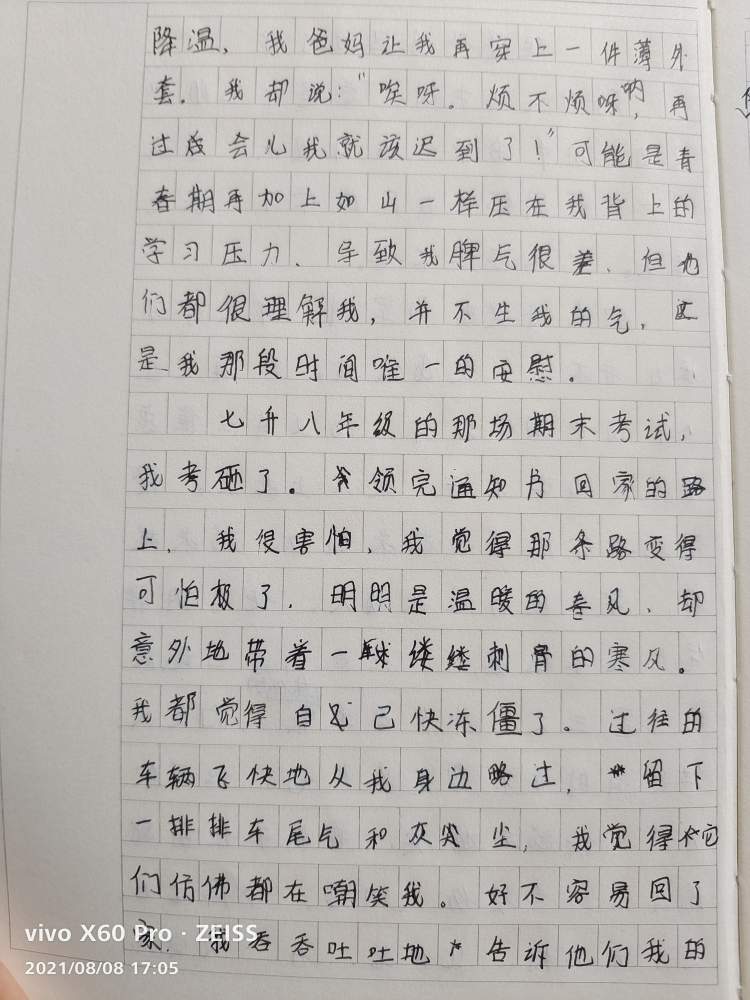 降温，我爸妈让我再穿上一件薄外
套。我却说："唉呀。烦不烦呀呐，再
过会儿我就该迟到了！"可能是青
春期再加上如山一样压在我背上的
学习压力，导致我脾气很差，但他
们都很理解我，并不生我的气，这
是我那段时间唯一的安慰。
七升八年级的那场期末考试，
我考砸了。领完通知书回家的路
上，我很害怕，我觉得那条路变得
可怕极了，明明是温暖的春风，却
意外地带着一缕缕刺骨的寒风。
我都觉得自己快冻僵了。过往的
车辆飞快地从我身边略过，留下
一排排车尾气和灰尘，我觉得它
们仿佛都在嘲笑我。好不容易回了
家，我吞吞吐吐地告诉他们我的
vivo X60 Pro · ZEISS
2021/08/08 17:05